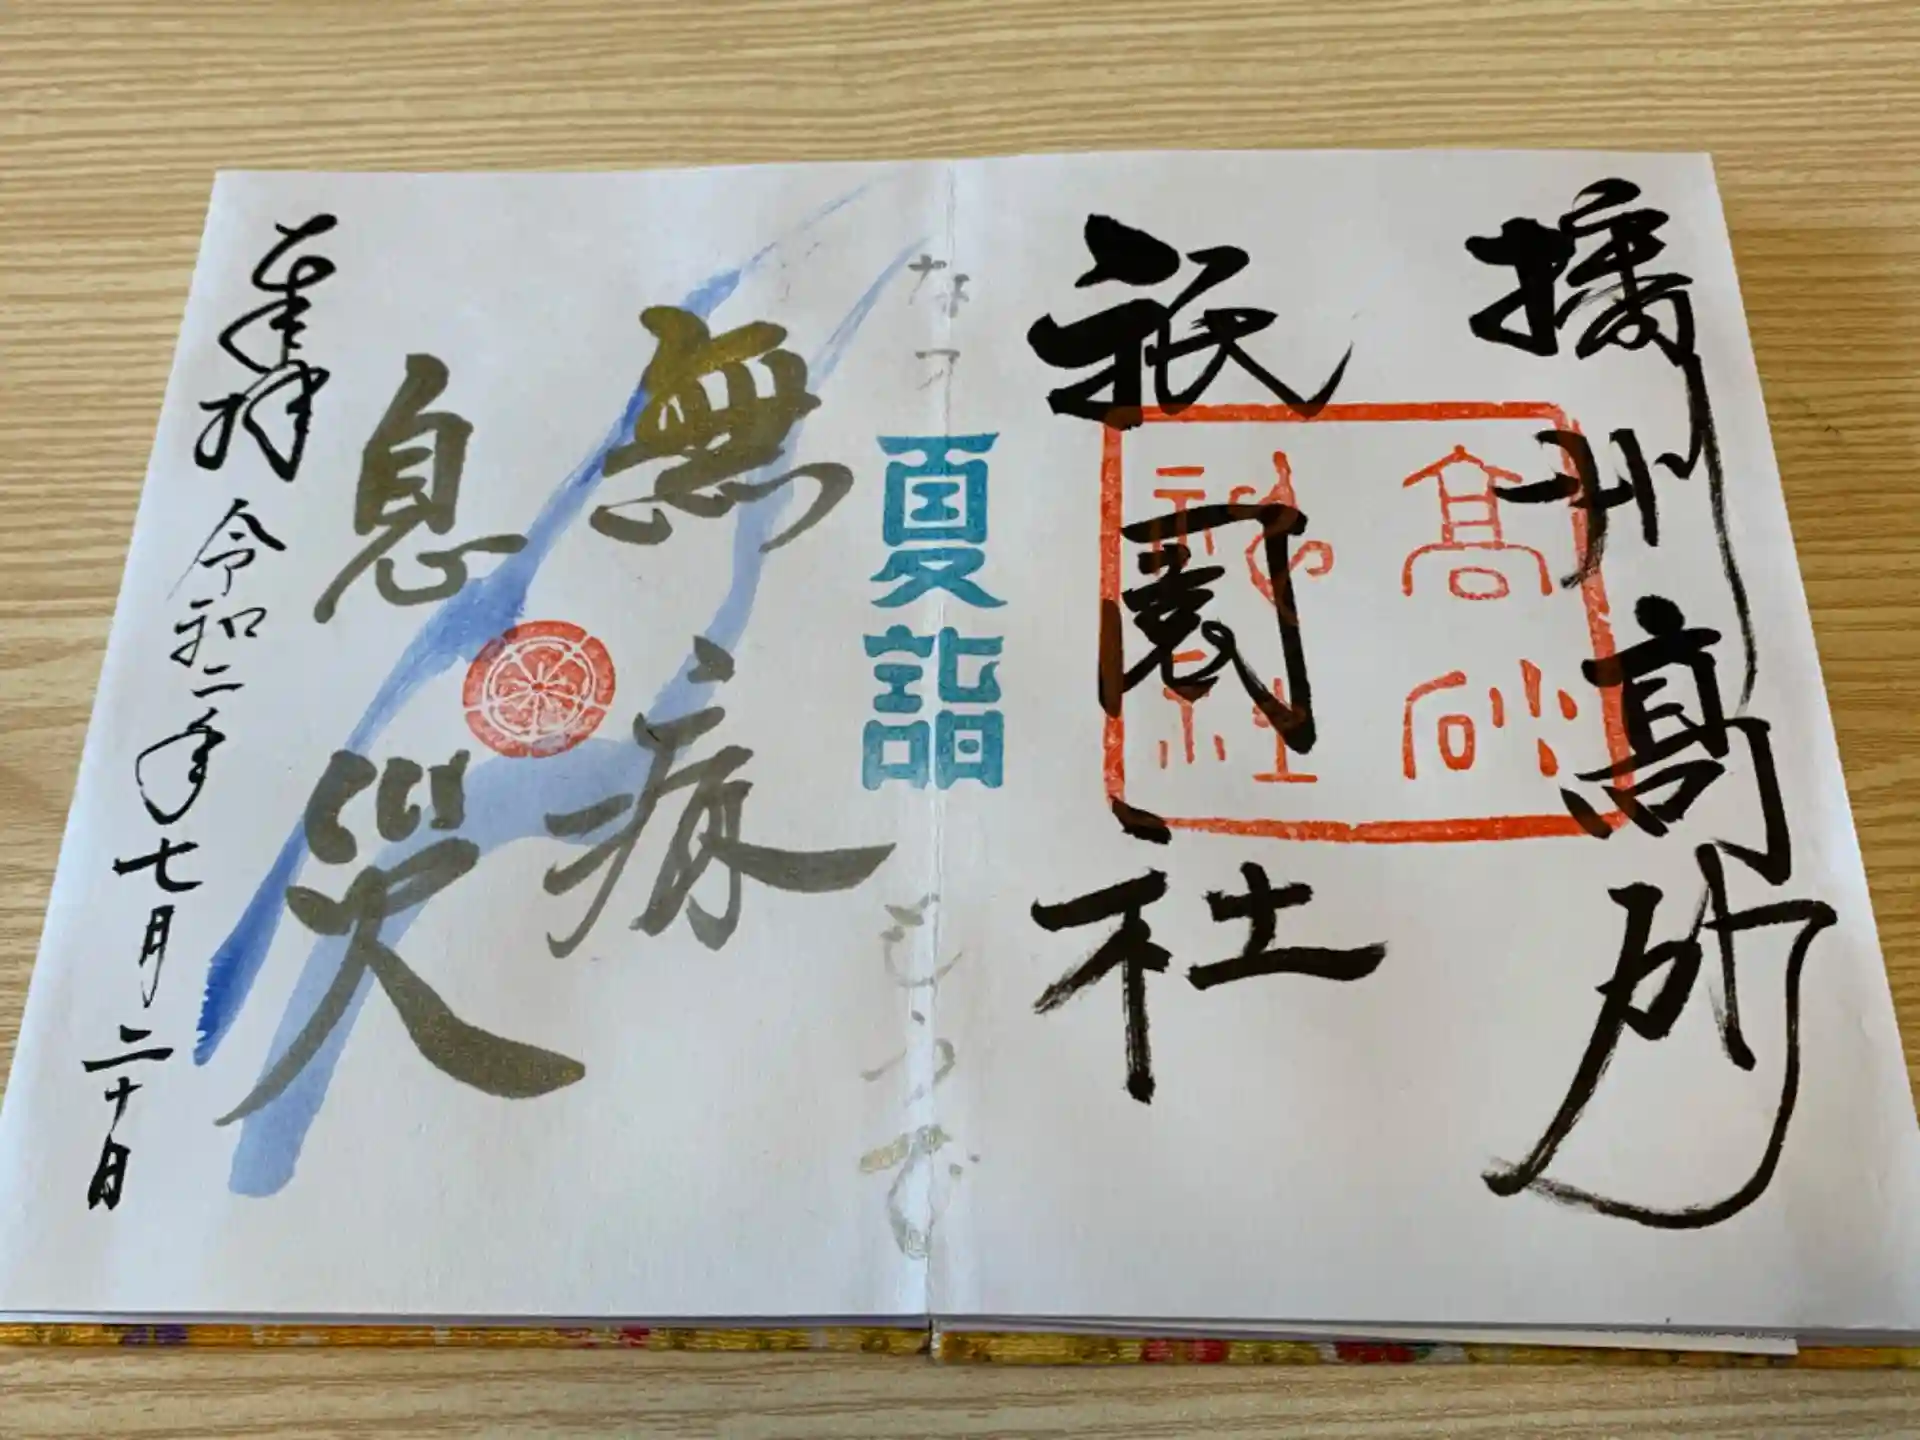 播州高砂
祇園社
高砂
神社
夏詣
なつ
もうで
無病
息災
奉拝
令和二年七月二十日